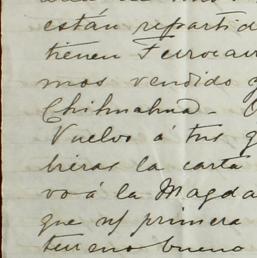 están repartid
tienen Ferrocarr
mos vendido
Chihuahua.
Vuelvo á tus q
bieras la carta
vo á la Magda
que n/ primera
terreno bueno